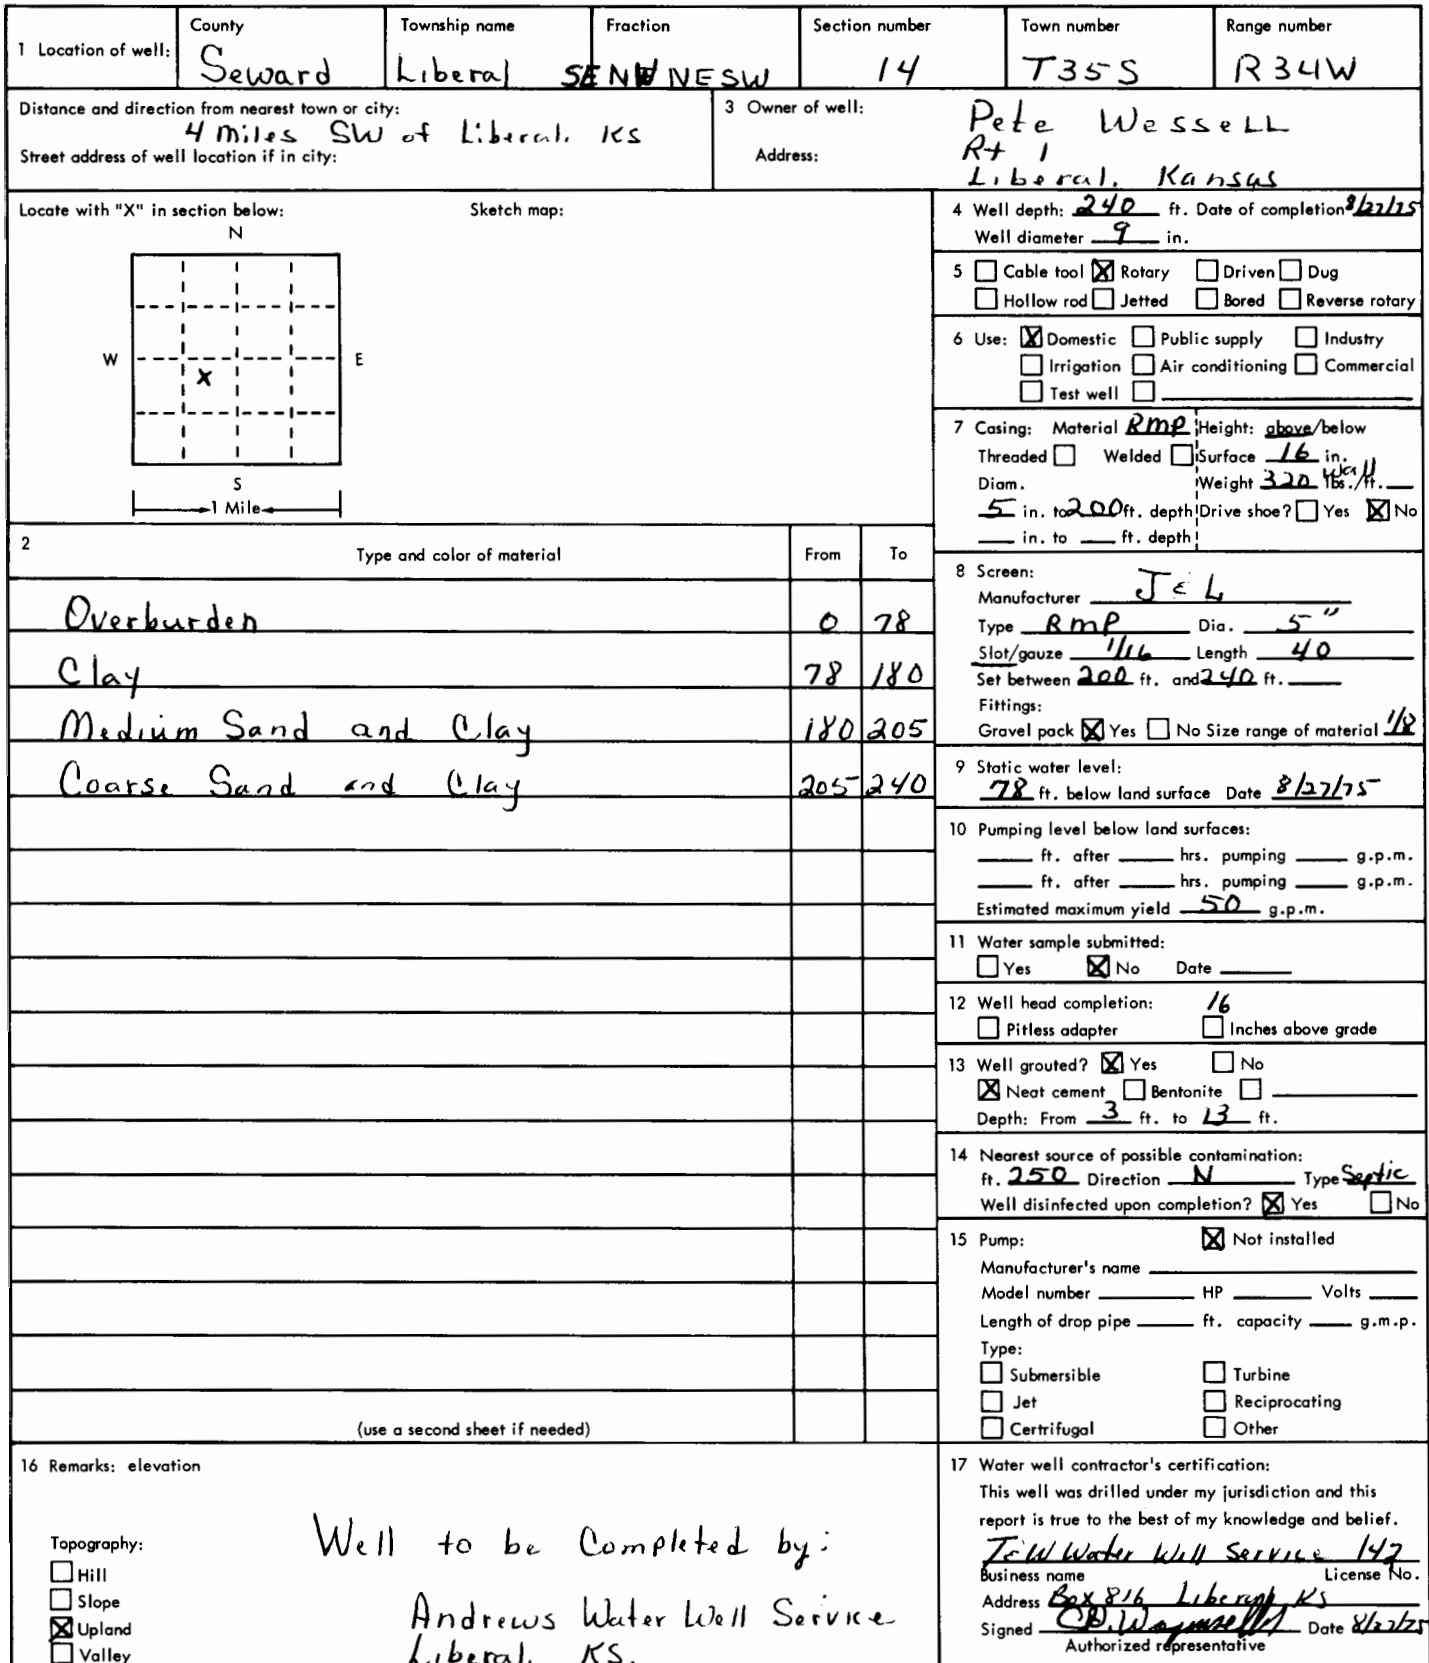 1 Location of well: County Seward Township name Liberal Fraction SE NW NE SW Section number 14 Town number T35S Range number R34W
Distance and direction from nearest town or city:
4 miles SW of Liberal, KS
Street address of well location if in city:
3 Owner of well: Pete Wessell
Address: Rt 1
Liberal, Kansas
Locate with "X" in section below: Sketch map:
N
W X E
S
1 Mile
2 Type and color of material From To
Overburden 0 78
Clay 78 180
Medium Sand and Clay 180 205
Coarse Sand and Clay 205 240
(use a second sheet if needed)
4 Well depth: 240 ft. Date of completion 8/27/75
Well diameter 9 in.
5 Cable tool X Rotary Driven Dug
Hollow rod Jetted Bored Reverse rotary
6 Use: X Domestic Public supply Industry
Irrigation Air conditioning Commercial
Test well
7 Casing: Material RMP Height: above/below
Threaded Welded Surface 16 in.
Diam. Weight 320 Wall lbs./ft.
5 in. to 200 ft. depth Drive shoe? Yes X No
in. to ft. depth
8 Screen:
Manufacturer J & L
Type RMP Dia. 5"
Slot/gauze 1/16 Length 40
Set between 200 ft. and 240 ft.
Fittings:
Gravel pack X Yes No Size range of material 1/8
9 Static water level:
78 ft. below land surface Date 8/27/75
10 Pumping level below land surfaces:
ft. after hrs. pumping g.p.m.
ft. after hrs. pumping g.p.m.
Estimated maximum yield 50 g.p.m.
11 Water sample submitted:
Yes X No Date
12 Well head completion: 16
Pitless adapter Inches above grade
13 Well grouted? X Yes No
X Neat cement Bentonite
Depth: From 3 ft. to 13 ft.
14 Nearest source of possible contamination:
ft. 250 Direction N Type Septic
Well disinfected upon completion? X Yes No
15 Pump: X Not installed
Manufacturer's name
Model number HP Volts
Length of drop pipe ft. capacity g.m.p.
Type:
Submersible Turbine
Jet Reciprocating
Certrifugal Other
16 Remarks: elevation
Well to be Completed by:
Andrews Water Well Service
Liberal, KS.
Topography:
Hill
Slope
X Upland
Valley
17 Water well contractor's certification:
This well was drilled under my jurisdiction and this
report is true to the best of my knowledge and belief.
J&W Water Well Service 142
Business name License No.
Address Box 816 Liberal, KS
Signed Date 8/27/75
Authorized representative